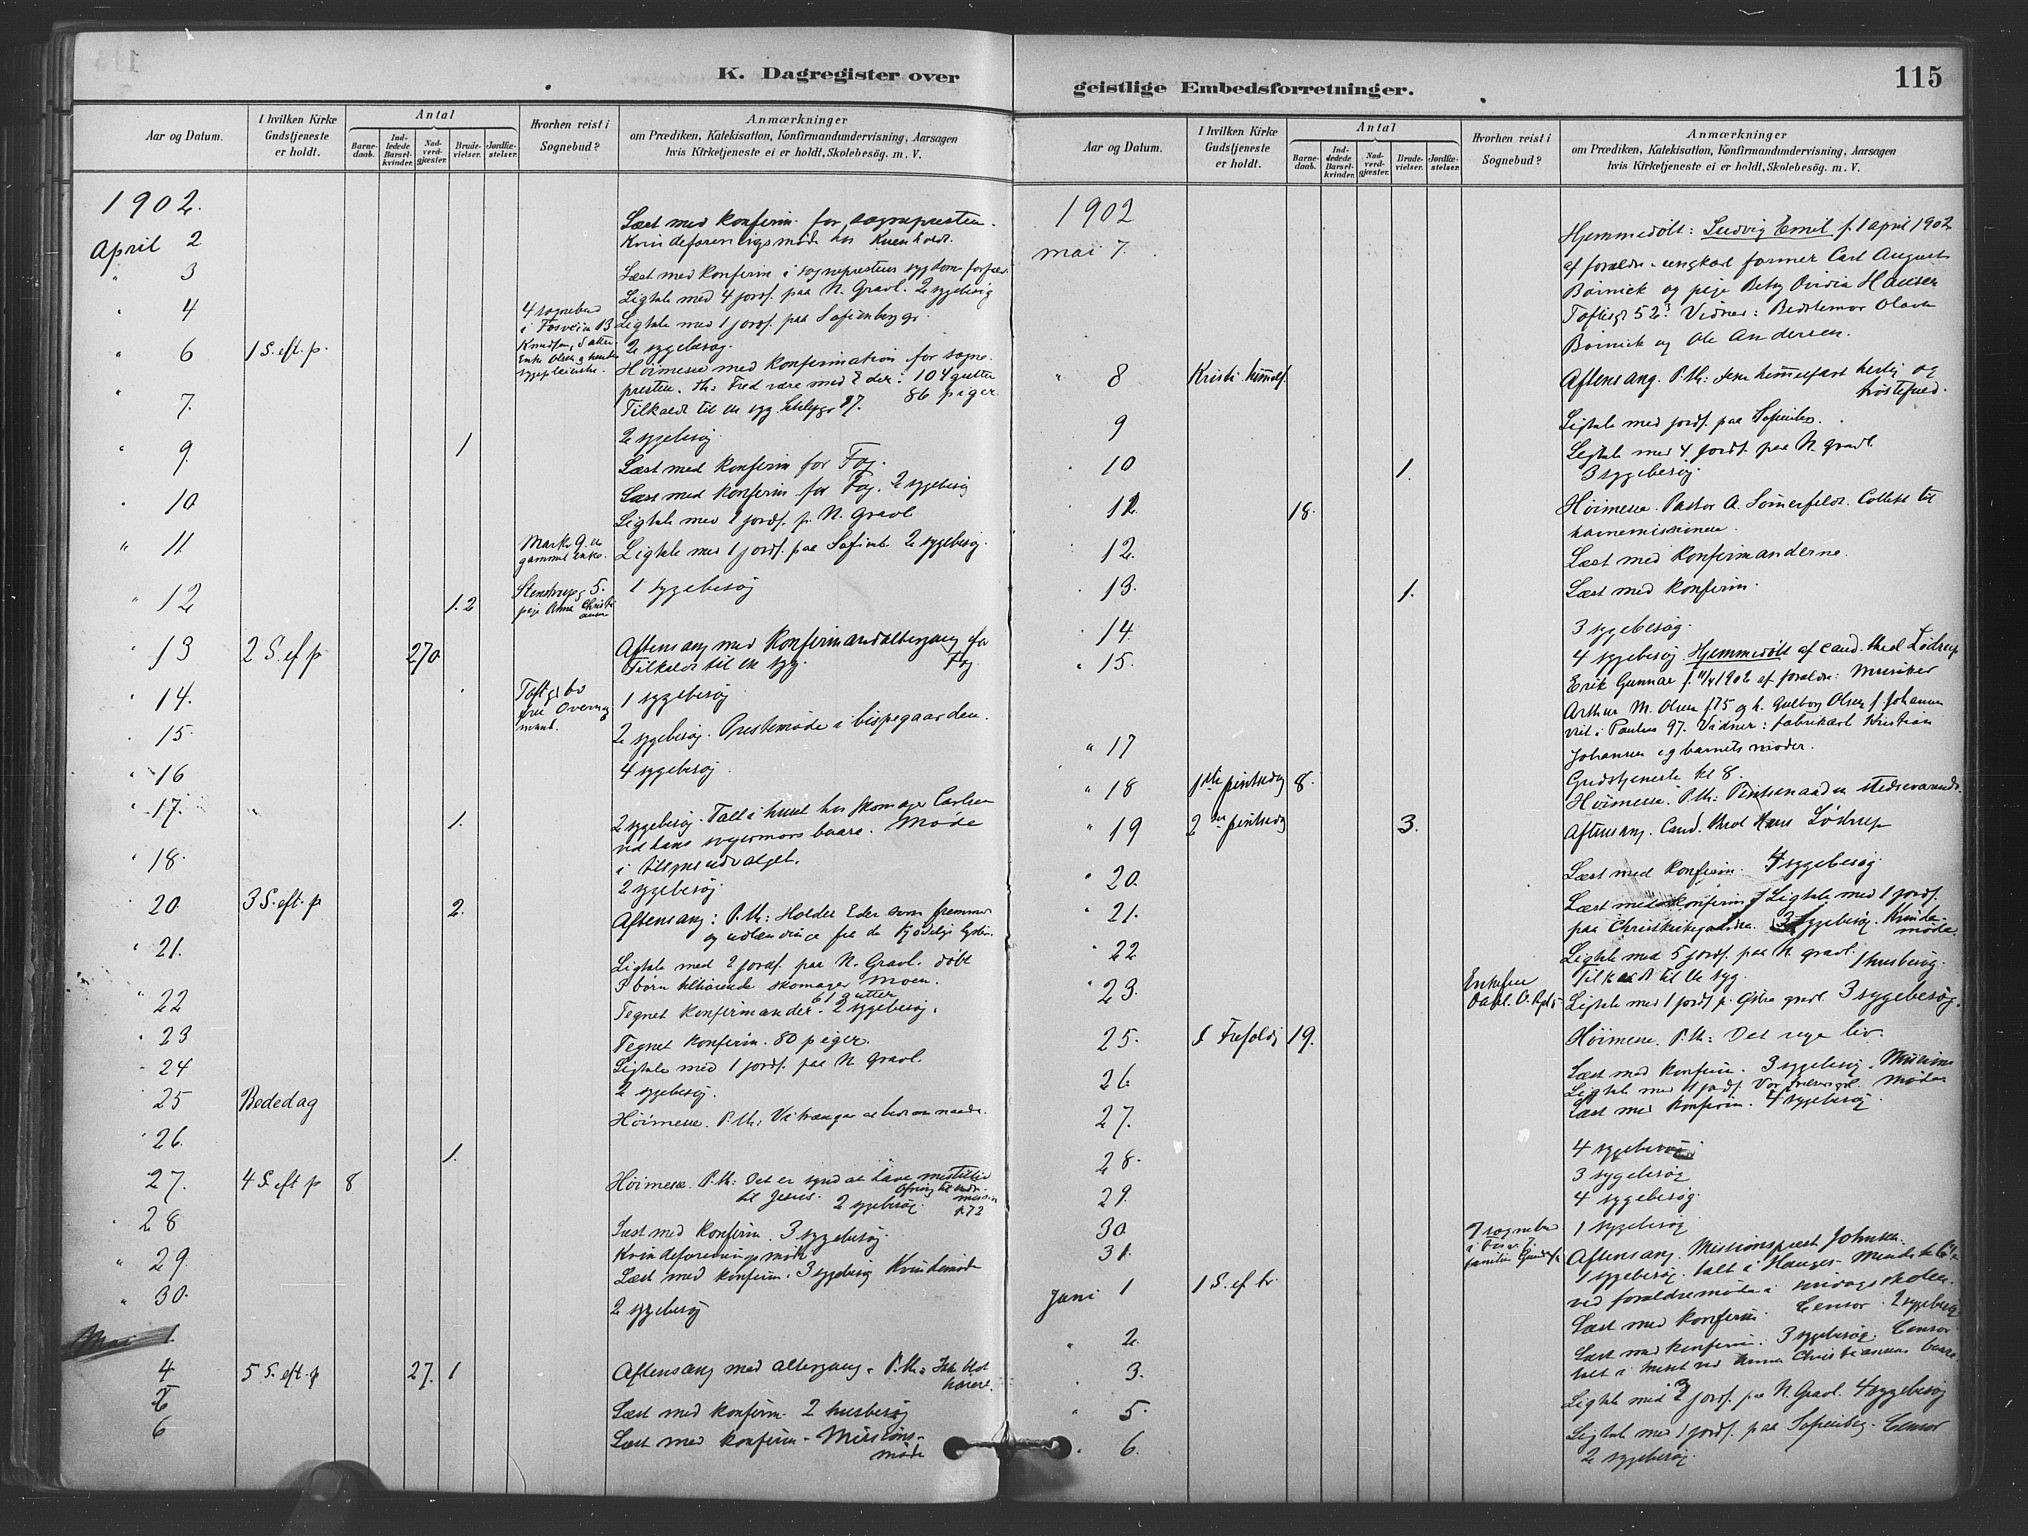 K. Dagregister over
geistlige Embedsforretninger.
115
Aar og Datum.
I hvilken Kirke Gudstjeneste er holdt.
Antal
Barnedaab.
Indledede Barselkvinder.
Nadverdgjæster.
Brudevielser.
Jordfæstelser.
Hvorhen reist i Sognebud?
Anmærkninger
om Prædiken, Katekisation, Konfirmandundervisning, Aarsagen
hvis Kirketjeneste ei er holdt, Skolebesøg. m. V.
1902.
April 2
Læst med konfirm. for sognepresten.
Kvindeforeningsmøde hos
" 3
Læst med konfirm i sogneprestens sygdoms forfald
Ligtale med 4 jordf. paa N. Gravl. 2 sygebesøg
" 4
4 sognebud
Ligtale med 1 jordf. paa Sofienberg.
2 sygebesøg.
" 6 1 S. eft. p.
Høimesse med konfirmation for sogne-
presten. Th: Fred være med Eder. 104 gutter
86 piger
" 7.
Tilkaldt til en syg
2 sygebesøg
" 9. 1
Læst med konfirm for Fog.
" 10
Læst med konfirm for Fog. 2 sygebesøg
Ligtale med 1 jordf. p. N. Gravl
" 11.
Markv 9. en
gammel enke.
Ligtale med 1 jordf. paa Sofienb. 2 sygebesøg.
" 12 1.2
Stenstrupg 5.
pige Anna Christi
ansen
1 sygebesøg
" 13 2 S. ef p 270
Aftensang med Konfirmandaltergang for
Tilkaldt til en syg. Fog.
" 14.
Toftg.
fru
1 sygebesøg
15.
2 sygebesøg. Prestemøde i bispegaarden.
" 16
4 sygebesøg.
" 17. 1.
2 sygebesøg. Talt i huset hos skomager Carlsen
ved hans svigermors baare. Møde
i tilsynsudvalget.
" 18.
2 sygebesøg.
20 3 S. eft. p 2.
Aftensang: P. th: Holder Eder som fremmede
og udlændinge fra de kjødelige lyster.
" 21.
Ligtale med 2 jordf. paa N. Gravl. døbt
børn tilhørende skomager Moen.
" 22
Tegnet konfirmander. 61 gutter 2 sygebesøg.
" 23
Tegnet konfirm. 80 piger.
" 24
Ligtale med 1 jordf. paa N. Gravl.
2 sygebesøg.
25 Bededag
Høimesse. P. th: Vi trænger at
" 26. 1.
27. 4 S. eft p 8
Høimesse. P. th: Det er synd at have
til Jesus. 2 sygebesøg.
" 28
Læst med konfirm. 3 sygebesøg.
Kvindeforenings møde
" 29.
Læst med konfirm. 3 sygebesøg Kvindemøde
" 30.
2 sygebesøg
Mai 1.
4 5 S. eft. p 27. 1
Aftensang med altergang. P. th: Ikke blot
hørere.
Læst med konfirm. 2 husbesøg
6
Læst med konfirm. Missions-
møde
Aar og Datum.
I hvilken Kirke Gudstjeneste er holdt.
Antal
Barnedaab.
Inddedede Barselkvinder.
Nadverdgjæster.
Brudevielser.
Jordfæstelser.
Hvorhen reist i Sognebud?
Anmærkninger
om Prædiken, Katekisation, Konfirmandundervisning, Aarsagen
hvis Kirketjeneste ei er holdt, Skolebesøg. m. V.
1902
mai 7.
Hjemmedøbt: Ludvig Emil f. 1 april 1902
af foraldre: ungkarl former Carl August
Boinick og pige Betsy Ovidia Hansen
Toftesgt 52. Vidner: Bedstemor Olava
Boinick og Ole Andersen.
" 8 Kristi himmelf.
Aftensang. P. th: Jesu himmelfart herlig og
trøstefuld.
9
Ligtale med jordf. paa Sofienberg.
10 1.
Ligtale med 4 jordf. paa N. gravl
3 sygebesøg.
12 18.
Høimesse. Pastor A. Sømerfeldt. Collekt til
havnemissionen.
12.
Læst med Konfirmanderne.
13. 1.
Læst med konfirm.
14.
3 sygebesøg.
15.
4 sygebesøg. Hjemmedøbt af cand. theol Lødrup
Erik Gunnar f. 11/4 1902 af foraldre: Musiker
Arthur M. Olsen f75 og h. Gulborg Olsen f Johansen
vist i Paulus 97. Vidner: fabrikarb. Kristian
Johansen og barnets moder.
" 17
Gudstjeneste kl 8.
" 18 1ste pintsedag 8.
Høimesse. P. th: Pintsenaaden stedsevarende.
" 19 2den pintsedag 3.
Aftensang. Cand. theol Hans Lødrup
" 20.
Læst med konfirm. 4 sygebesøg.
" 21.
Læst med konfirm Ligtale med 1 jordf.
paa Christkirkegaarden. sygebesøg. Kvinde-
møde.
" 22
Ligtale med 5 jordf. paa N. gravl. 1 husbesøg.
Tilkaldt til en syg.
" 23.
Enkefru
Ligtale med 1 jordf p. Østre gravl. 3 sygebesøg.
25. 1 Trefoldig 19.
Høimesse. P. th: Det nye liv.
26
Læst med konfirm. 3 sygebesøg. Missions
Ligtale med 1 jordf. Vor frelsersgvl. møde
27.
Læst med konfirm. 4 sygebesøg.
28.
4 sygebesøg
3 sygebesøg
29.
4 sygebesøg.
30
1 sygebesøg
31.
7 sognebud
familie
Juni 1 1 S. ef tr.
Aftensang. Missionsprest Johnsen.
1 sygebesøg. talt i Hauges Minde
ved foraldremøde i søndagsskolen.
" 2
Læst med konfirm. Censor. 2 sygebesøg
3.
Læst med konfirm. 3 sygebesøg. Censor
talt i huset ved Anna Christiansens baare
" 5.
Ligtale med 2 jordf. paa N. Gravl. 4 sygebesøg
" 6.
Ligtale med 1 jordf. paa Sofienberg. Censor
2 sygebesøg.